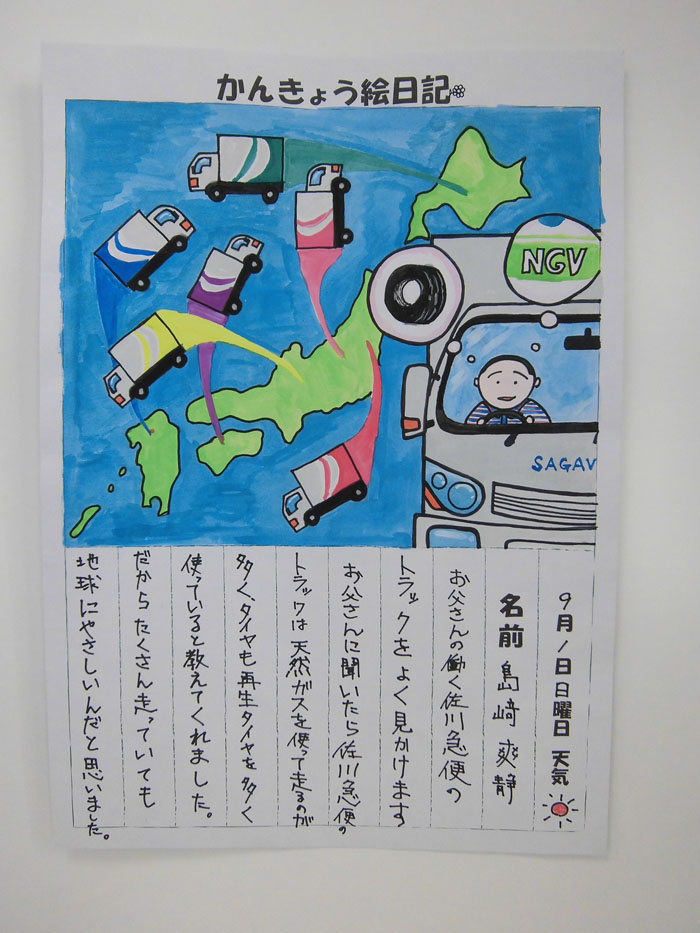 かんきょう絵日記
NGV
SAGAV
9月1日日曜日 天気
名前 島﨑爽静
お父さんの働く佐川急便の
トラックをよく見かけます
お父さんに聞いたら佐川急便の
トラックは天然ガスを使って走るのが
多く、タイヤも再生タイヤを多く
使っていると教えてくれました。
だからたくさん走っていても
地球にやさしいんだと思いました。